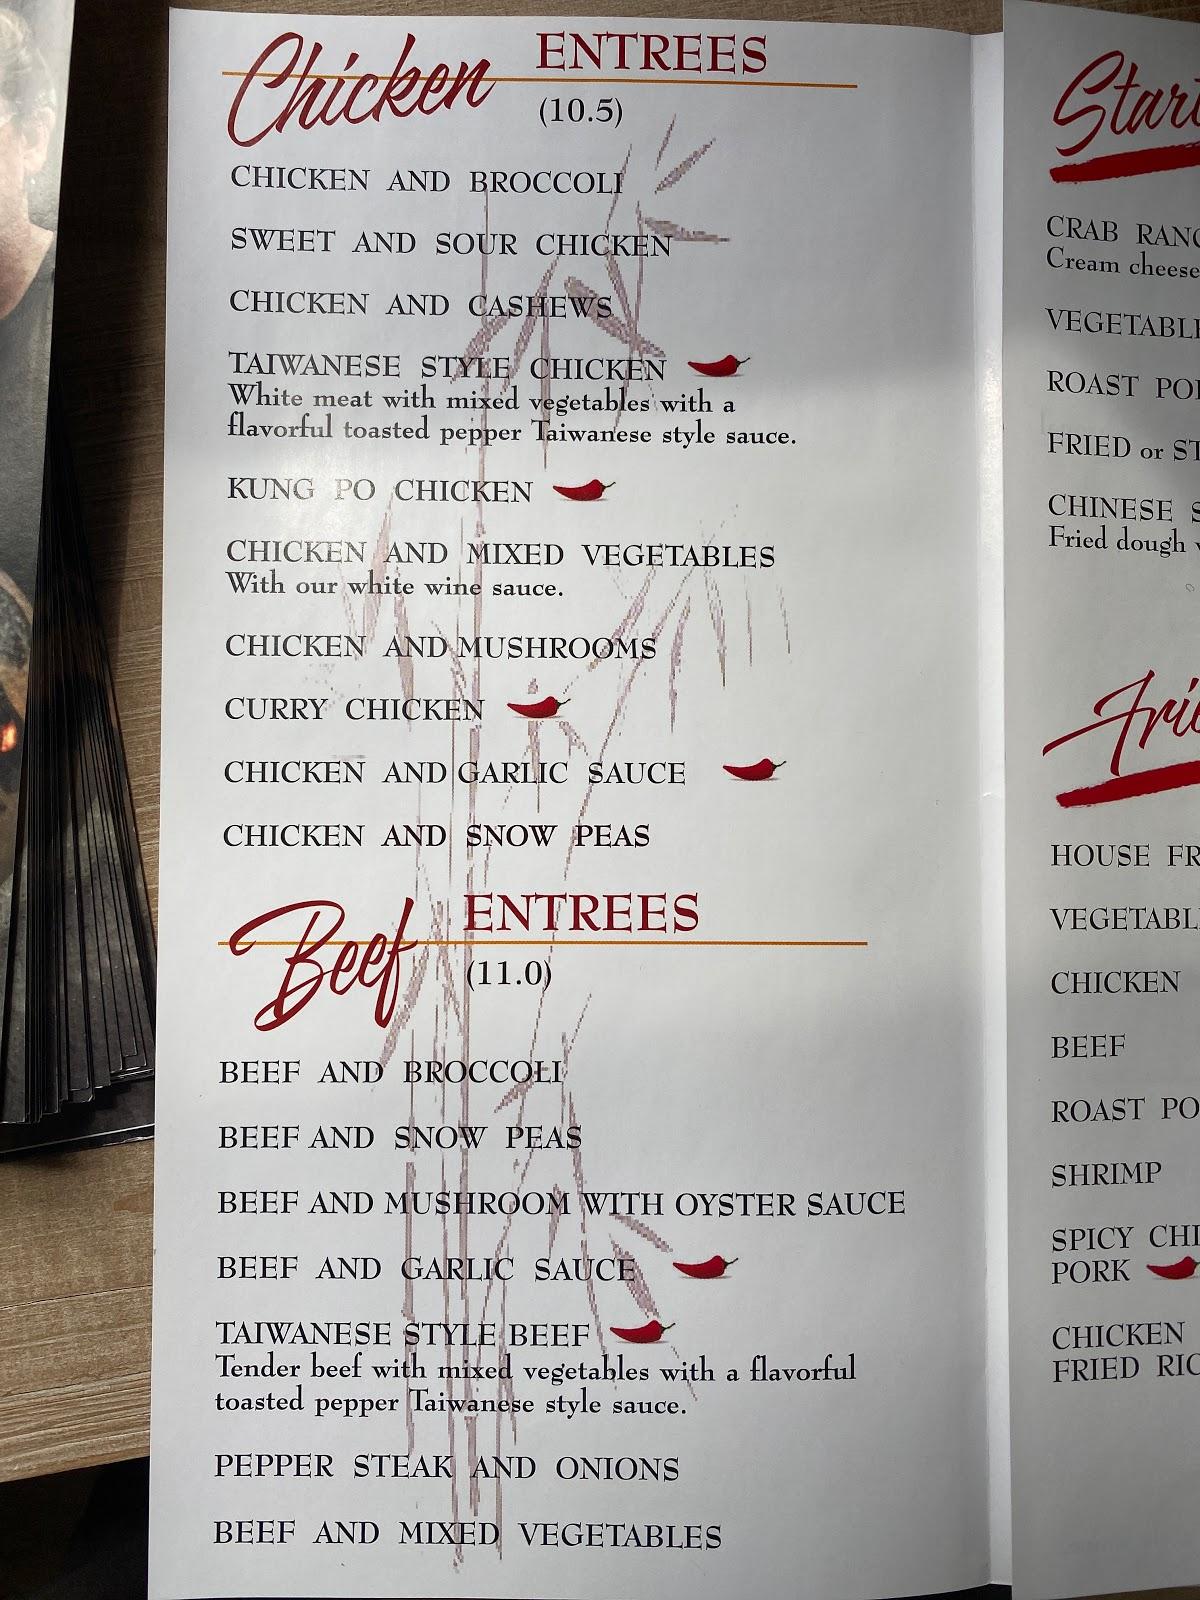 Chicken ENTREES
(10.5)
CHICKEN AND BROCCOLI
SWEET AND SOUR CHICKEN
CHICKEN AND CASHEWS
TAIWANESE STYLE CHICKEN
White meat with mixed vegetables with a
flavorful toasted pepper Taiwanese style sauce.
KUNG PO CHICKEN
CHICKEN AND MIXED VEGETABLES
With our white wine sauce.
CHICKEN AND MUSHROOMS
CURRY CHICKEN
CHICKEN AND GARLIC SAUCE
CHICKEN AND SNOW PEAS
Beef ENTREES
(11.0)
BEEF AND BROCCOLI
BEEF AND SNOW PEAS
BEEF AND MUSHROOM WITH OYSTER SAUCE
BEEF AND GARLIC SAUCE
TAIWANESE STYLE BEEF
Tender beef with mixed vegetables with a flavorful
toasted pepper Taiwanese style sauce.
PEPPER STEAK AND ONIONS
BEEF AND MIXED VEGETABLES
CRAB
Cream cheese
ROAST
FRIED or
CHINESE
Fried dough
HOUSE
CHICKEN
BEEF
ROAST
SHRIMP
SPICY
PORK
CHICKEN
FRIED